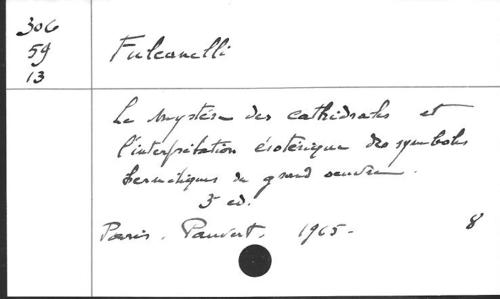 306
59
13
Fulcanelli
Le mystère des cathédrales et
l'interprétation ésotérique des symboles
hermétiques du grand oeuvre.
3e ed.
Paris. Pauvert. 1965-
8